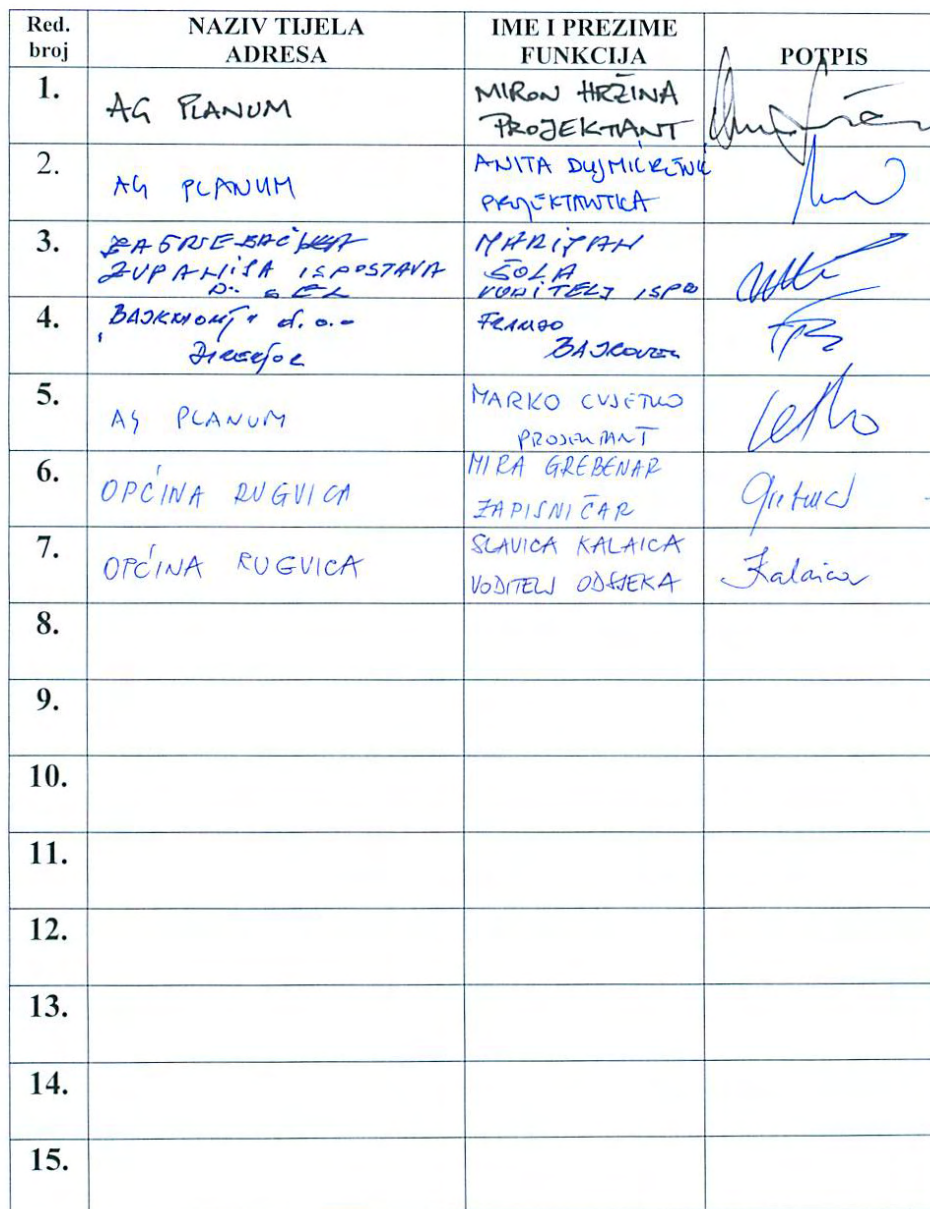 Red. broj
NAZIV TIJELA ADRESA
IME I PREZIME FUNKCIJA
POTPIS
1.
AG PLANUM
MIRON HRŽINA
PROJEKTANT
2.
AG PLANUM
ANITA
PROJEKTANTICA
3.
ZAGREBAČKA
ŽUPANIJA ISPOSTAVA
MARIJAN
ŠOLA
VODITELJ ISPO
4.
d.o.o
Direktor
FRANJO
BAJKOVEC
5.
AG PLANUM
MARKO CVJETKO
PROJEKTANT
6.
OPĆINA RUGVICA
MIRA GREBENAR
ZAPISNIČAR
7.
OPĆINA RUGVICA
SLAVICA KALAICA
VODITELJ ODSJEKA
Kalaica
8.
9.
10.
11.
12.
13.
14.
15.